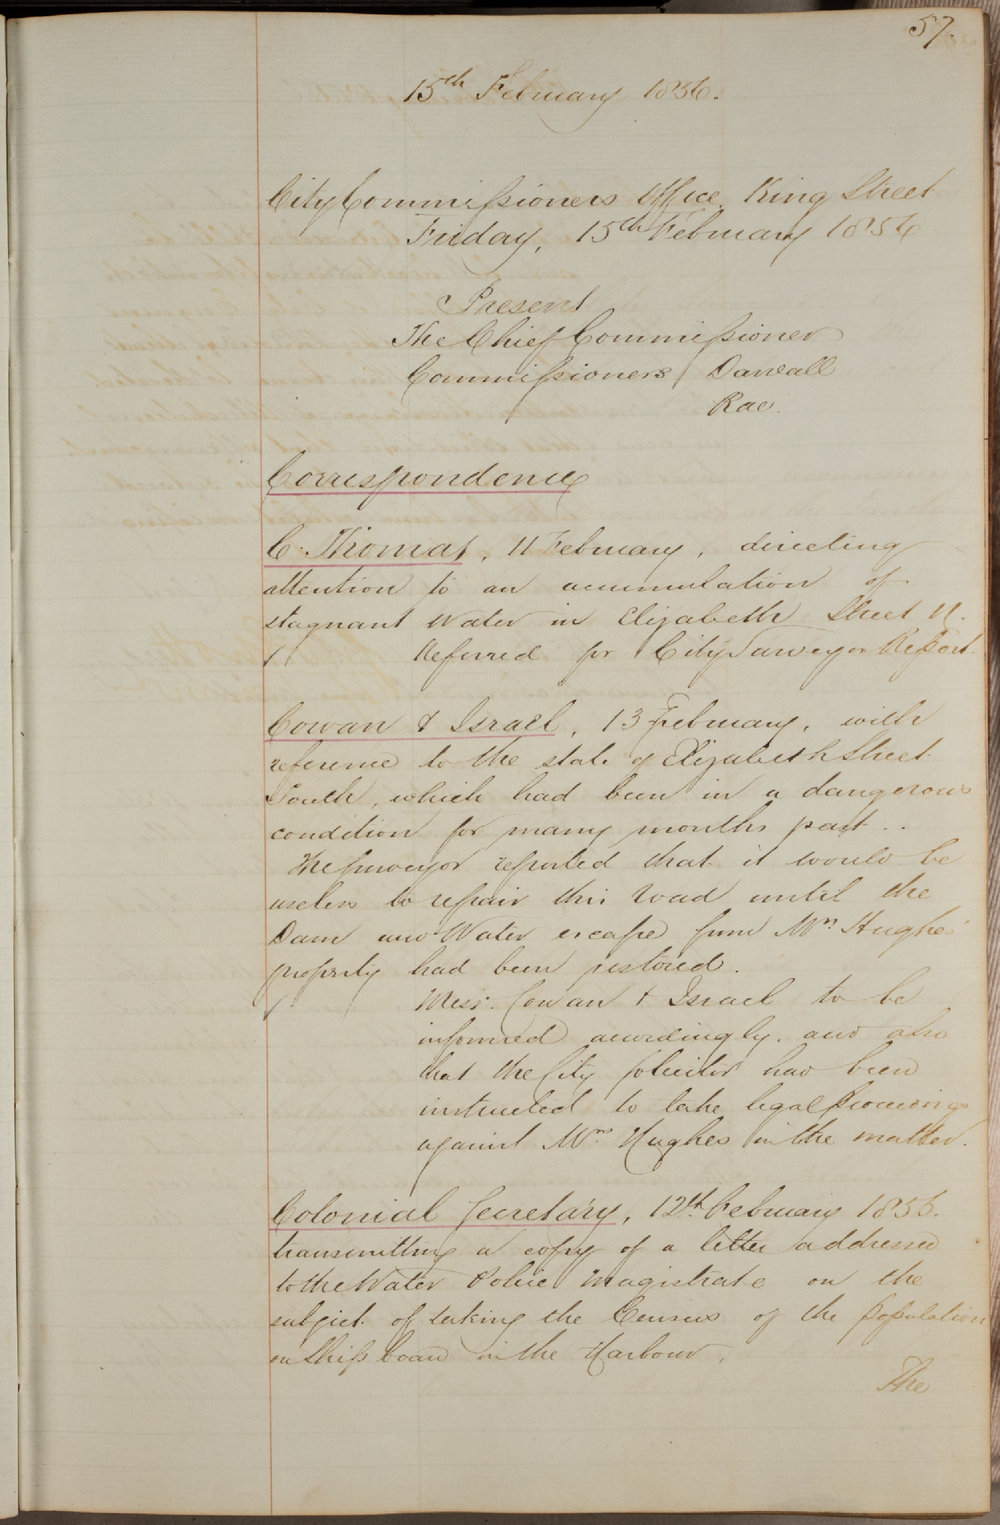 57.
15th February 1856.
City Commissioners Office, King Street
Friday, 15th February 1856
Present
The Chief Commissioner
Commissioners Darvall
Rae.
Correspondence
C. Thomas, 11 February, directing
attention to an accumulation of
stagnant Water in Elizabeth Street N.
Referred for City Surveyor Report.
Cowan & Israel, 13 February, with
reference to the state of Elizabeth Street
South, which had been in a dangerous
condition for many months past..
The Surveyor reported that it would be
useless to repair this road until the
Dam and Water escape from Mrs. Hughes
property had been restored.
Messrs. Cowan & Israel to be
informed accordingly. and also
that the City Solicitor had been
instructed to take legal proceedings
against Mrs. Hughes in the matter.
Colonial Secretary, 12th February 1856.
transmitting a copy of a letter addressed
to the Water Police Magistrate on the
subject of taking the Census of the population
on Ship board in the Harbour.
The